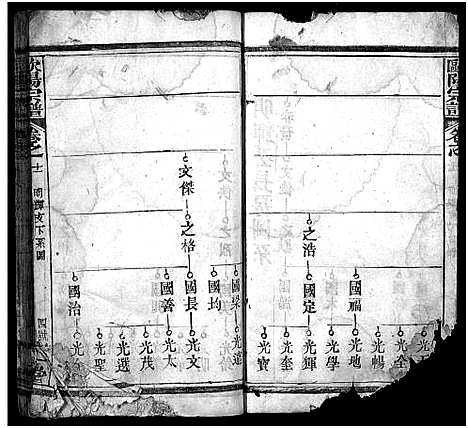 歐陽宗譜
卷之
之浩
國福
國定
光全
光暢
光地
光學
光輝
光奎
光寶
文傑
之格
國梁
國均
國長
國善
國治
光遠
光文
光太
光茂
光選
光聖
光
歐陽宗譜
卷之十
明輝支下系圖